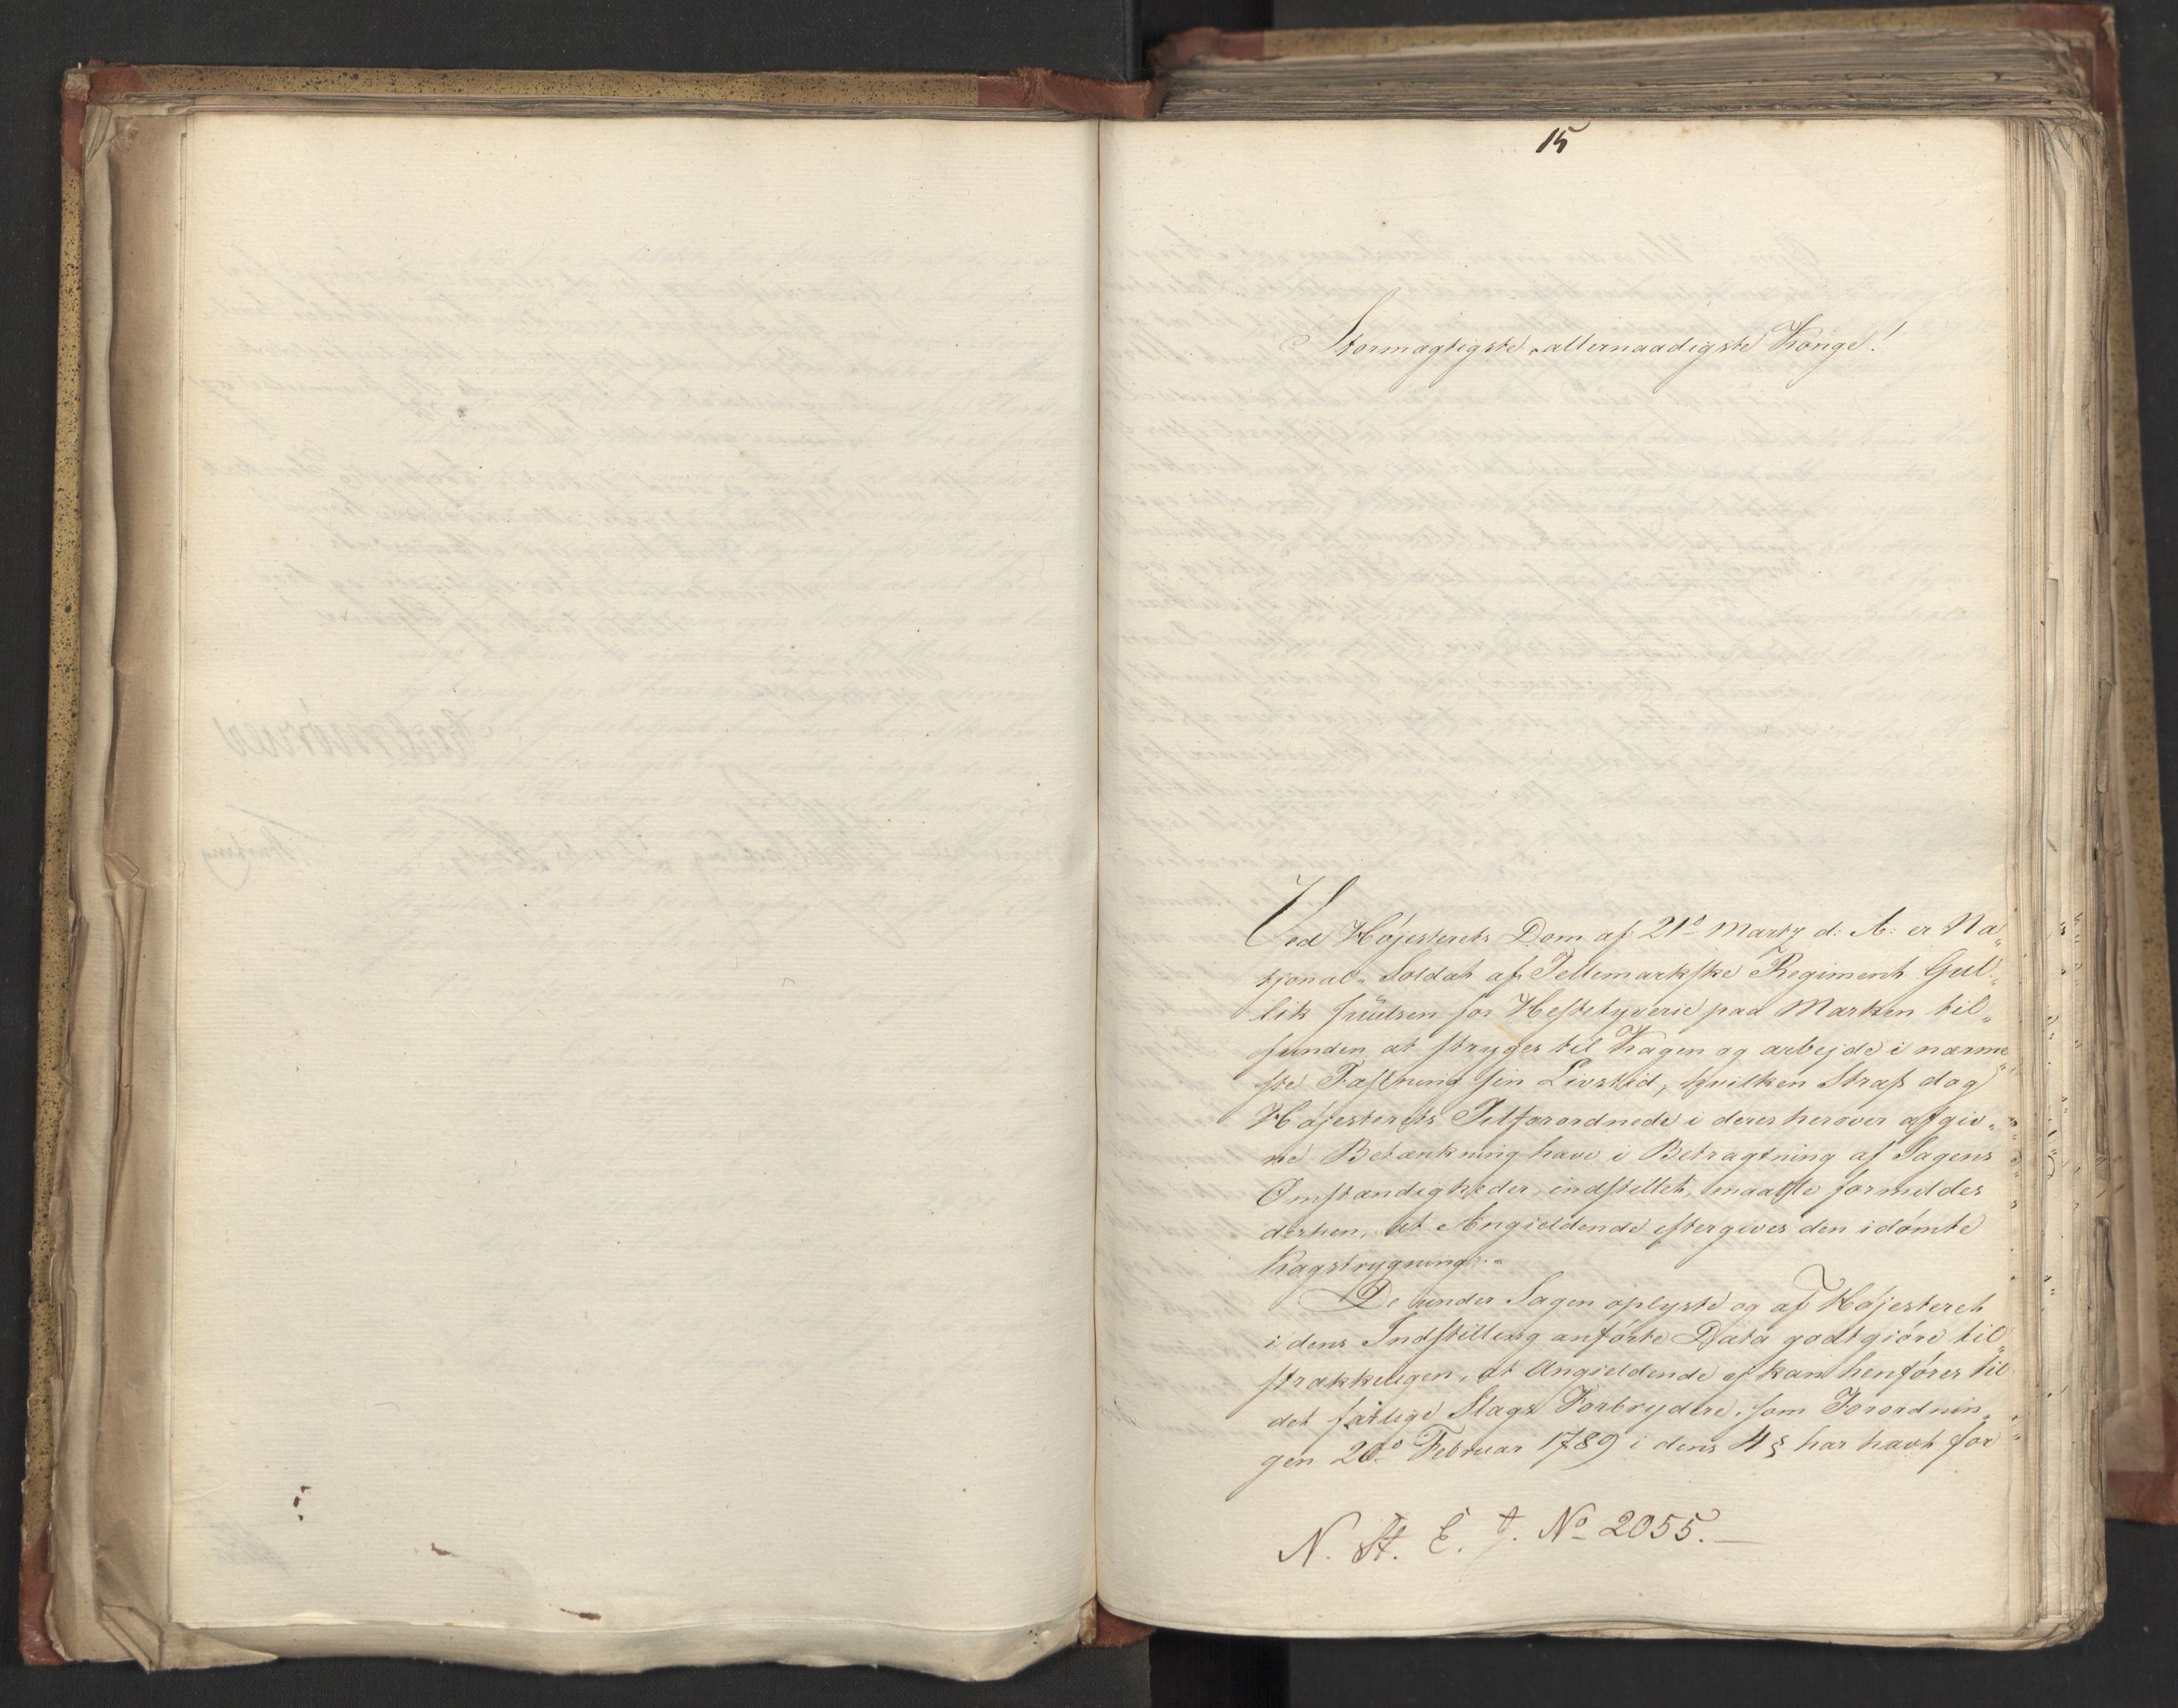 15
Stormægtigste allernaadigste Konge!
Ved Høiesterets Dom af 21de Martz d: A: er Na„
tjonal„ Soldat af Tellemarkske Regiment Gul„
lik Juulsen for Hestetyverie paa Marken til„
funden at stryges til Kagen og arbejde i nærme„
ste Fæstning sin Livstid, hvilken Straf dog
Højesterets Tilforordnede i deres herover afgiv„
ne Betænkning have i Betragtning af Sagens
Omstændigheder indstillet, maatte formildes
derhen, at Angieldende eftergives den idømte
Kagstrygning.
De under Sagen oplyste og af Højesteret
i dens Indstilling anførte Data godtgiøre til„
strækkeligen, at Angieldende ej kan henføres til
det farlige Slags Forbrydere, som Forordnin„
gen 20de Februar 1789 i dens 4 § har havt for
N. St. E. J. No 2055.